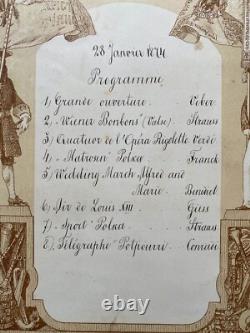 28 Janvier 1874
Programme
1) Grande ouverture. Veber
2) „Wiener Bonbons" (Valse) Strauss
3) Quatuor de l'Opéra Rigoletto Verdi
4) „Matrosin" Polka Franck
5) Wedding March Alfred and
Marie. Beninet
6) Air de Louis XIII Giss
7) „Sport" Polka Strauss
8) „Télégraphe" Potpourri Conradi